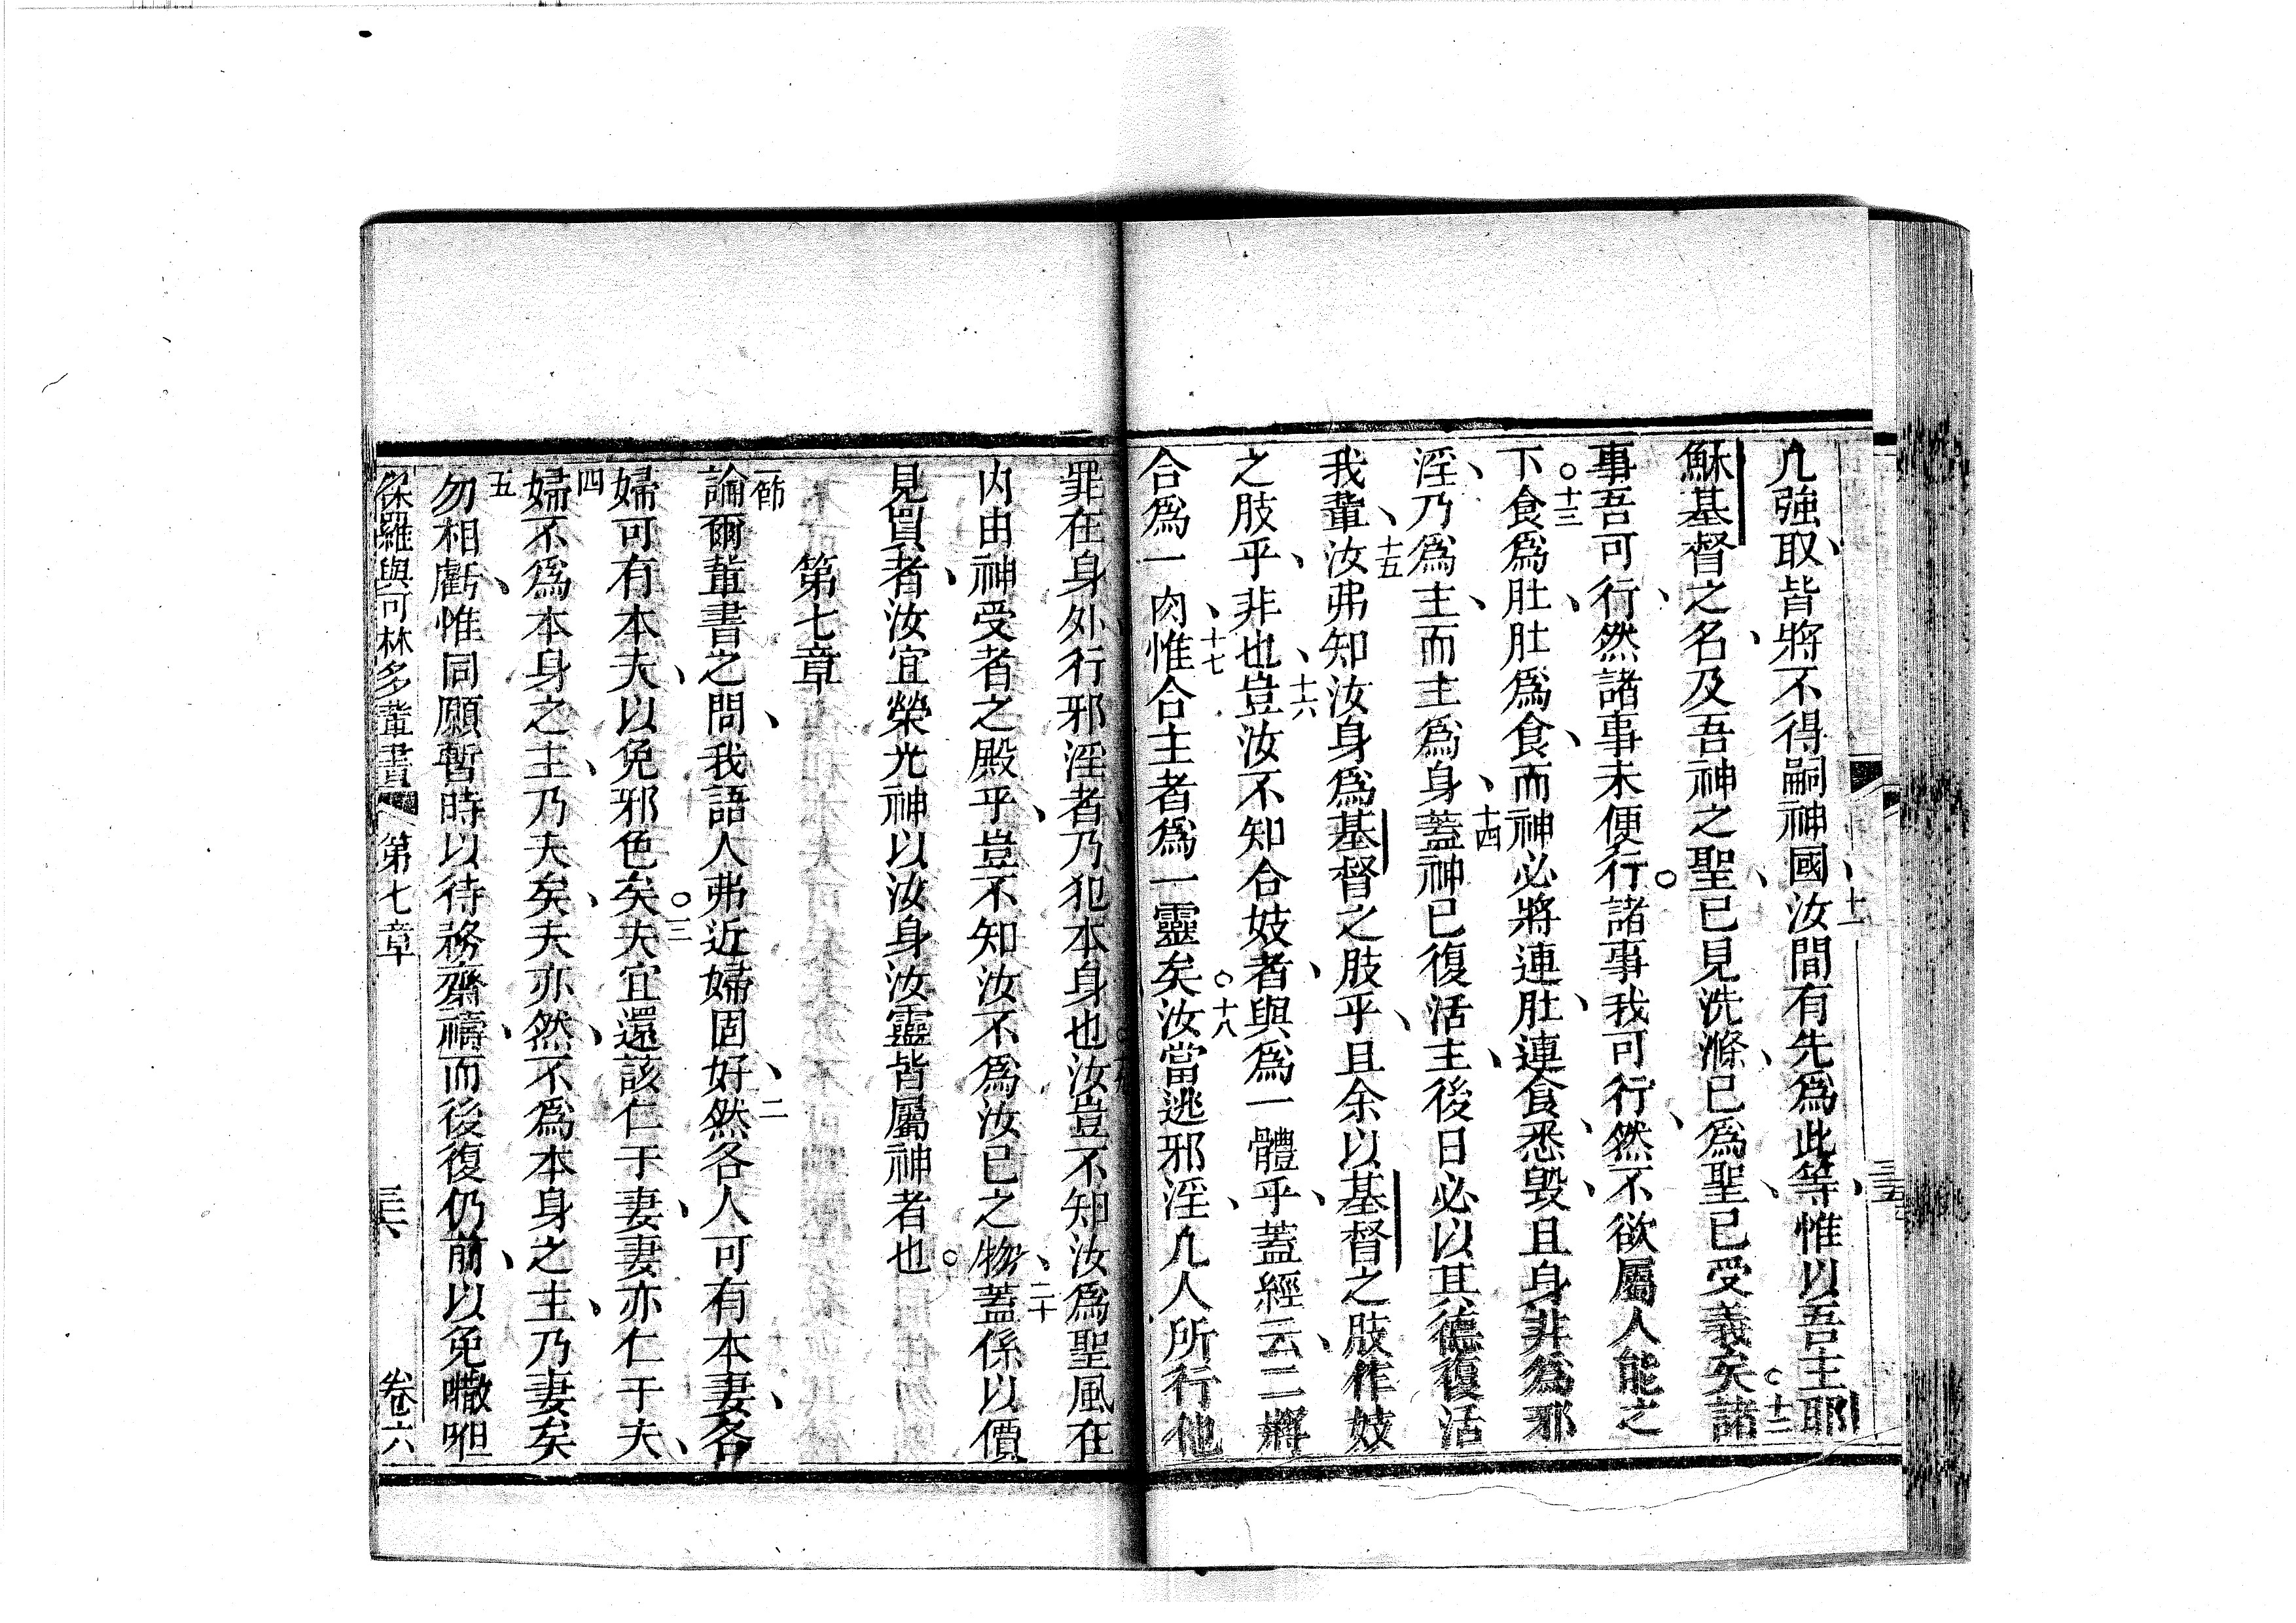 凢強取、皆將不得嗣神國、十一汝間有先爲此等、惟以吾主耶
穌基督之名、及吾神之聖、已見洗滌、已爲聖、已受義矣○十二諸
事吾可行、然諸事未便行○諸事我可行、然不欲屬人能之
下○十三食爲肚、肚爲食、而神必將連肚、連食悉毀、且身非爲邪
淫、乃爲主、而主爲身、十四蓋神已復活主、後日必以其德復活
我輩、十五汝弗知汝身爲基督之肢乎、且余以基督之肢作妓
之肢乎、非也、十六豈汝不知合妓者、與爲一體乎、蓋經云、二將
合爲一肉、十七惟合主者爲一靈矣○十八汝當逃邪淫、凢人所行他
罪在身外、行邪淫者乃犯本身也○汝豈不知汝爲聖風在
內、由神受者之殿乎、豈不知汝不爲汝已之物、二十蓋係以價
見買者、汝宜榮光神以汝身汝靈皆屬神者也○
第七章
一節論爾輩書之問、我語人弗近婦固好、二然各人可有本妻、各
婦可有本夫、以免邪色矣○三夫宜還該仁于妻、妻亦仁于夫、
四婦不爲本身之主、乃夫矣、夫亦然、不爲本身之主、乃妻矣
五勿相虧、惟同願暫時以待務齋禱、而後復仍前、以免㘚呾
保羅與可林多輩書 第七章 三六 卷六